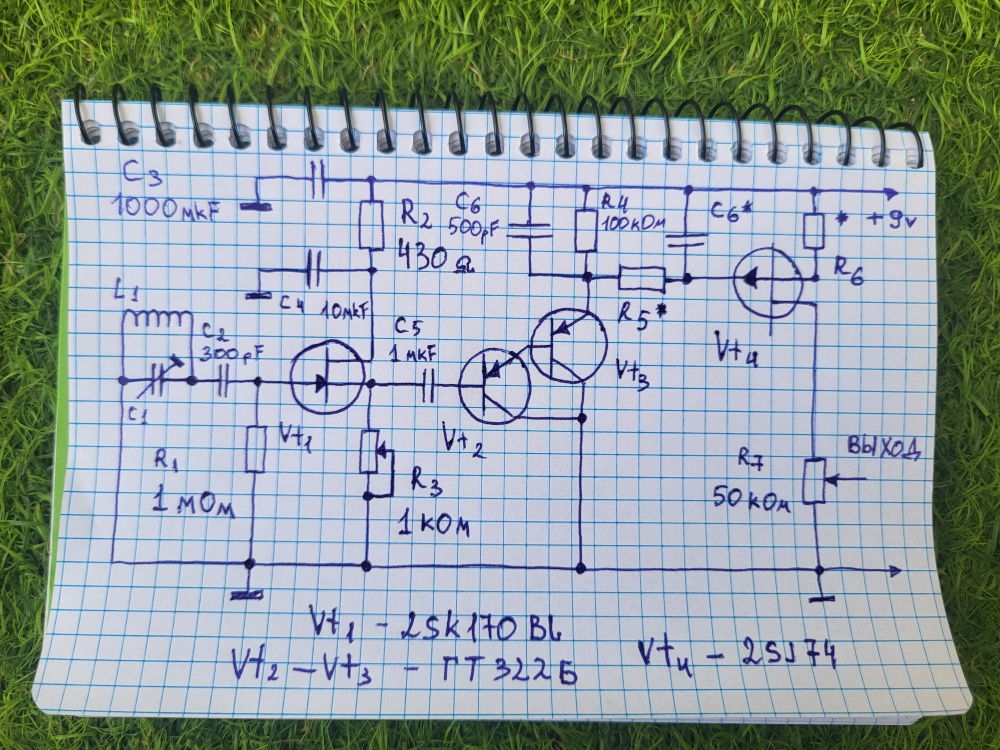 C3
1000мкF
R2
430Ω
C6
500pF
R4
100кОм
C6*
* +9v
R6
L1
C4 10мкF
R5*
C2
300pF
C5
1мкF
C1
Vt1
Vt2
Vt3
Vt4
R1
1 мОм
R3
1 кОм
R7
50кОм
ВЫХОД
Vt1 - 2SK170BL
Vt2 - Vt3 - ГТ322Б
Vt4 - 2SJ74